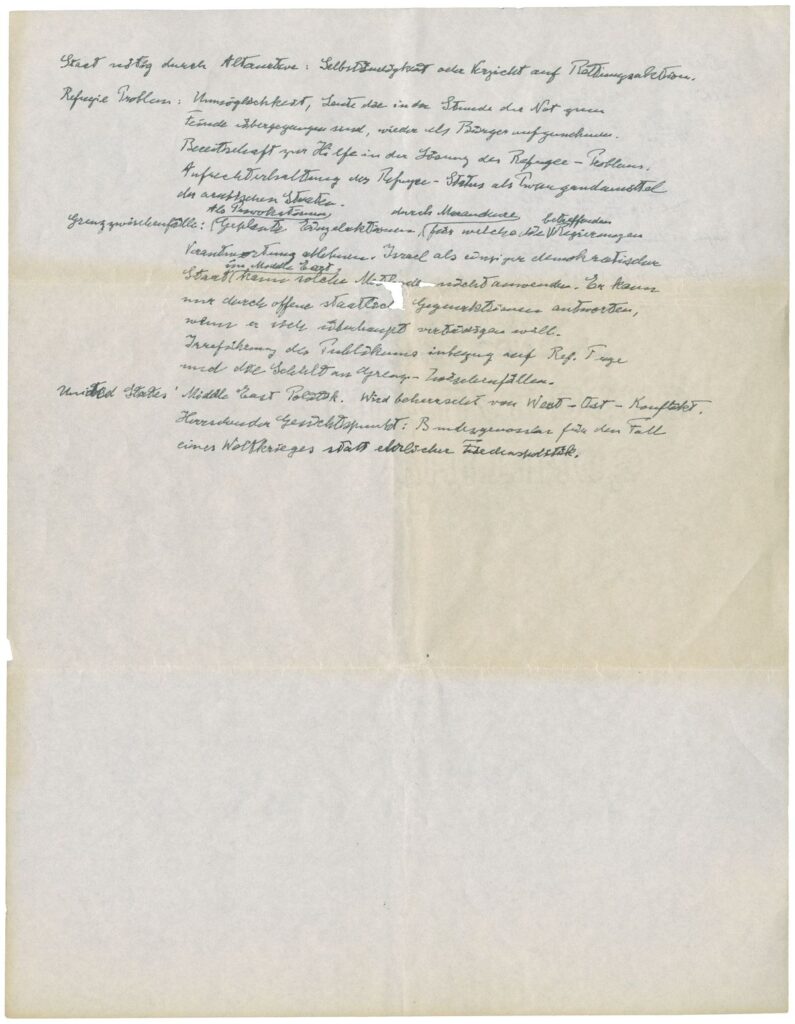 Staat nötig durch Altanative: Selbständigkeit oder Verzicht auf Rettungsaktion.
Refugie Problem: Unmöglichkeit, Leute die in der Stunde der Not zum
Feinde übergegangen sind, wieder als Bürger aufzunehmen.
Bereitschaft zur Hilfe in der Lösung des Refugee-Problems.
Aufrechterhaltung des Refugee-Status als Propagandamittel
der arabischen Staaten.
Als Provokationen durch Marendeure betreffenden
Grenzzwischenfälle: (Geplante Einzelaktionen, (für welche die Regierungen
Verantwortung ablehnen. Israel als einziger demokratischer
im Middle East
Staat (kann solche nicht anwenden. Er kann
nur durch offene Gegenaktionen antworten,
wenn er sich überhaupt verteidigen will.
Irreführung des Publikums inbezug auf Ref. Frage
und die Schuld an Grenz-Zwischenfällen.
United States' Middle East Politik. Wird beherrscht von West-Ost-Konflikt.
Herrschender Gesichtspunkt: Bundesgenossen für den Fall
eines Weltkrieges statt ehrlicher Friedenspolitik.